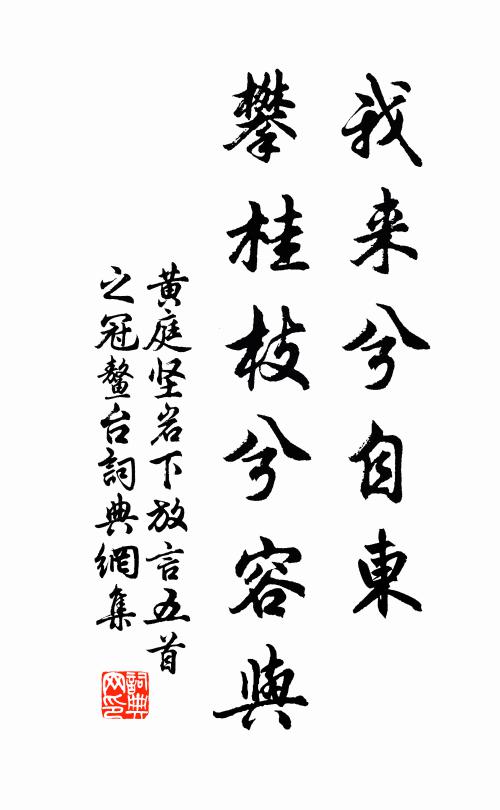 我来兮自東
攀桂枝兮容與
黄庭坚岩下放言五首
之冠鳌台詞典網集
詞典网印